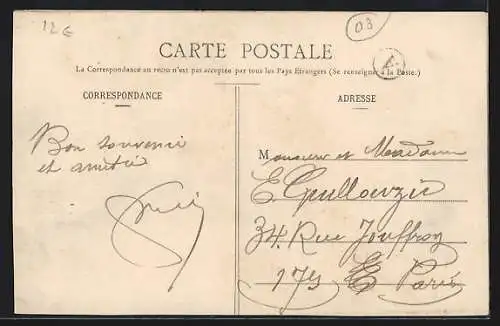 12 €
03
CARTE POSTALE
A
La Correspondance au recto n'est pas acceptée par tous les Pays Etrangers (Se renseigner à la Poste.)
CORRESPONDANCE
ADRESSE
Bon souvenir
et amitié
Monsieur et Madame
E.
34 Rue Jouffroy
17e Paris